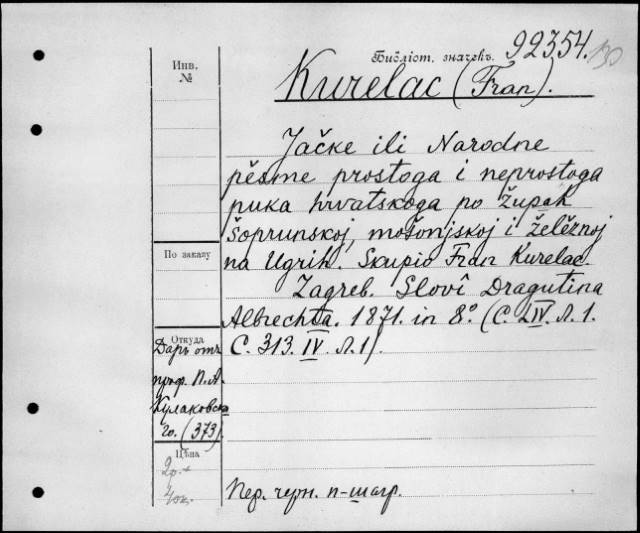 Инв.
№
Библіот. значекъ. 92354.
Kurelac (Fran).
Jačke ili Narodne
pěsme prostoga i neprostoga
puka hrvatskoga po župah
šoprunskoj, mošonjskoj i želěznoj
na Ugrih. Skupio Fran Kurelac.
Zagreb. Slovi Dragutina
Albrechta. 1871. in 8.° (С. LIV. Л. 1.
С. 313. IV. Л. 1).
По заказу
Откуда
Даръ отъ
проф. П. А.
Кулаковска
го. (373).
Цѣна
2р.
40к.
Пер. черн. п-шагр.